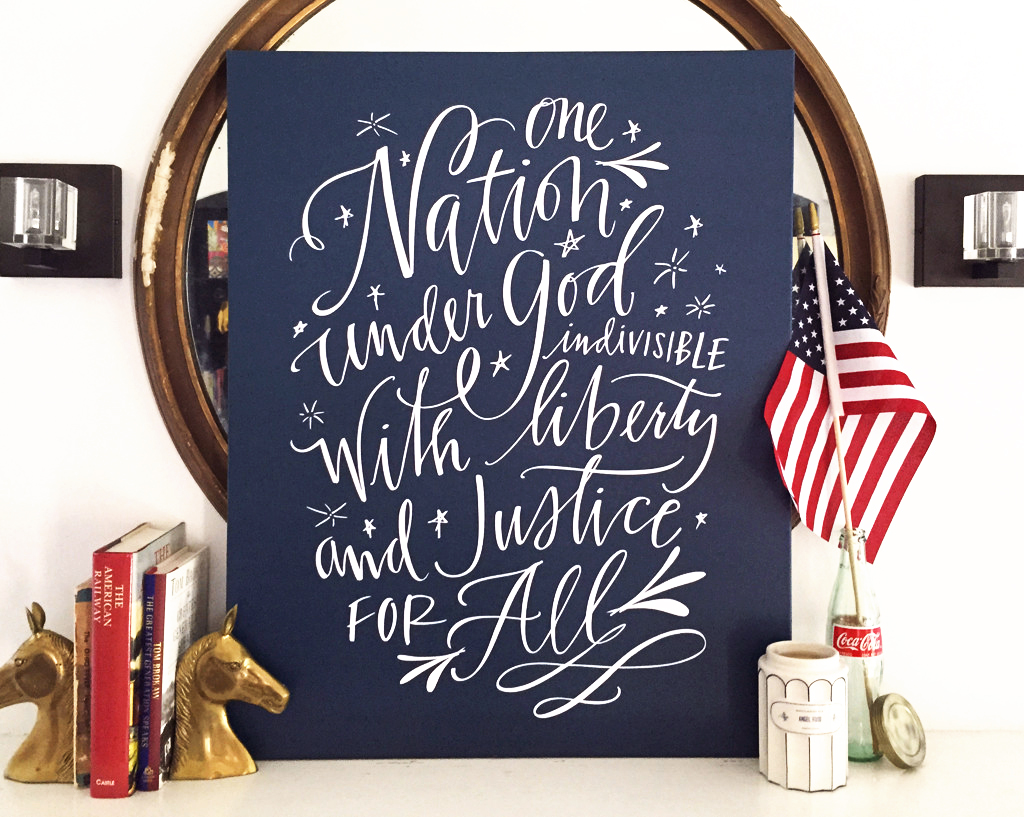 one
Nation
under God
indivisible
with liberty
and Justice
FOR All
THE AMERICAN RAILWAY
CASTLE
TOM BROKAW
THE GREATEST GENERATION SPEAKS
Coca-Cola
ANGEL FOOD